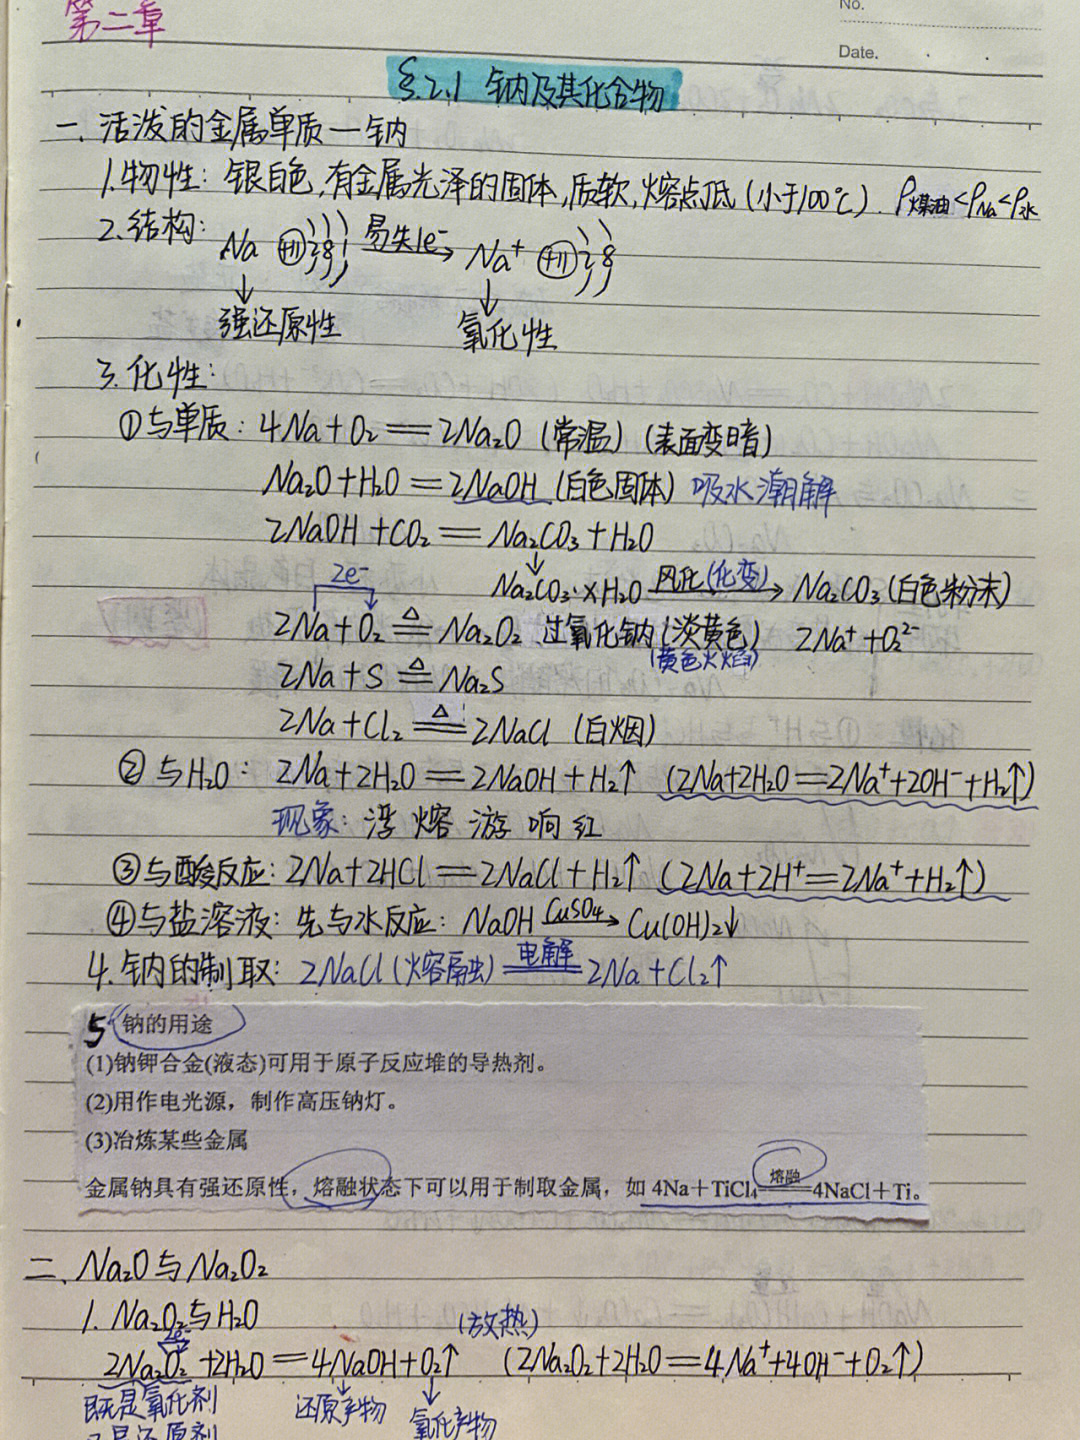 第二章
No.
Date.
§2.1 钠及其化合物
一、活泼的金属单质一钠
1.物性：银白色,有金属光泽的固体,质软,熔点低(小于100℃). ρ煤油<ρNa<ρ水
2.结构: Na (+11) 2 8 1 易失1e⁻→ Na⁺ (+11) 2 8
↓强还原性 ↓氧化性
3.化性:
①与单质: 4Na+O₂==2Na₂O (常温) (表面变暗)
Na₂O+H₂O=2NaOH (白色固体) 吸水潮解
2NaOH+CO₂==Na₂CO₃+H₂O
↓
Na₂CO₃·xH₂O 风化(化变)→ Na₂CO₃(白色粉末)
2e⁻
2Na+O₂ =△= Na₂O₂ 过氧化钠(淡黄色) 2Na⁺+O₂²⁻
(黄色火焰)
2Na+S =△= Na₂S
2Na+Cl₂ =△= 2NaCl (白烟)
②与H₂O: 2Na+2H₂O==2NaOH+H₂↑ (2Na+2H₂O==2Na⁺+2OH⁻+H₂↑)
现象: 浮 熔 游 响 红
③与酸反应: 2Na+2HCl==2NaCl+H₂↑ (2Na+2H⁺==2Na⁺+H₂↑)
④与盐溶液: 先与水反应: NaOH CuSO₄→ Cu(OH)₂↓
4.钠的制取: 2NaCl(熔融) =电解= 2Na+Cl₂↑
5 钠的用途
(1)钠钾合金(液态)可用于原子反应堆的导热剂。
(2)用作电光源，制作高压钠灯。
(3)冶炼某些金属
金属钠具有强还原性，熔融状态下可以用于制取金属，如 4Na＋TiCl₄ =熔融= 4NaCl＋Ti。
二、Na₂O与Na₂O₂
1. Na₂O₂与H₂O (放热)
2e⁻
2Na₂O₂+2H₂O==4NaOH+O₂↑ (2Na₂O₂+2H₂O==4Na⁺+4OH⁻+O₂↑)
既是氧化剂 还原产物 氧化产物
又是还原剂